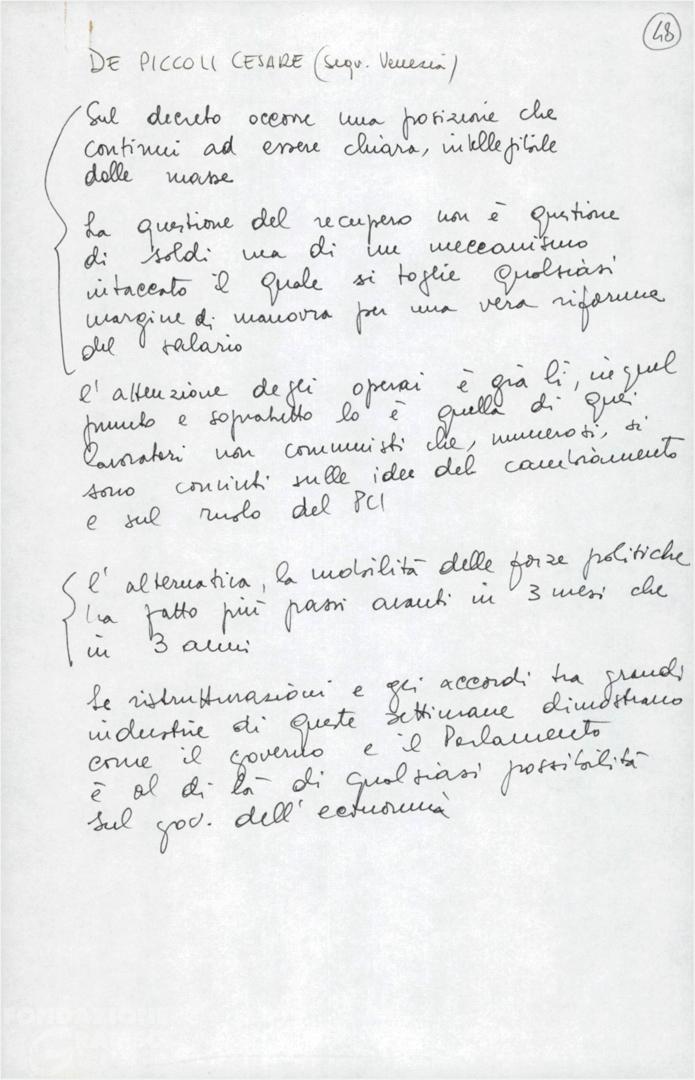 48
DE PICCOLI CESARE (segr. Venezia)
Sul decreto occorre una posizione che
continui ad essere chiara, intellegibile
dalle masse
La questione del recupero non è questione
di soldi ma di un meccanismo
intaccato il quale si toglie qualsiasi
margine di manovra per una vera riforma
del salario
L'attenzione degli operai è già lì, in quel
punto e sopratutto lo è quella di quei
lavoratori non comunisti che, numerosi, si
sono convinti sulle idee del cambiamento
e sul ruolo del PCI
L'alternativa, la mobilità delle forze politiche
ha fatto più passi avanti in 3 mesi che
in 3 anni
Le ristrutturazioni e gli accordi tra grandi
industrie di queste settimane dimostrano
come il governo e il Parlamento
è al di là di qualsiasi possibilità
sul gov. dell'economia
FONDAZIONE